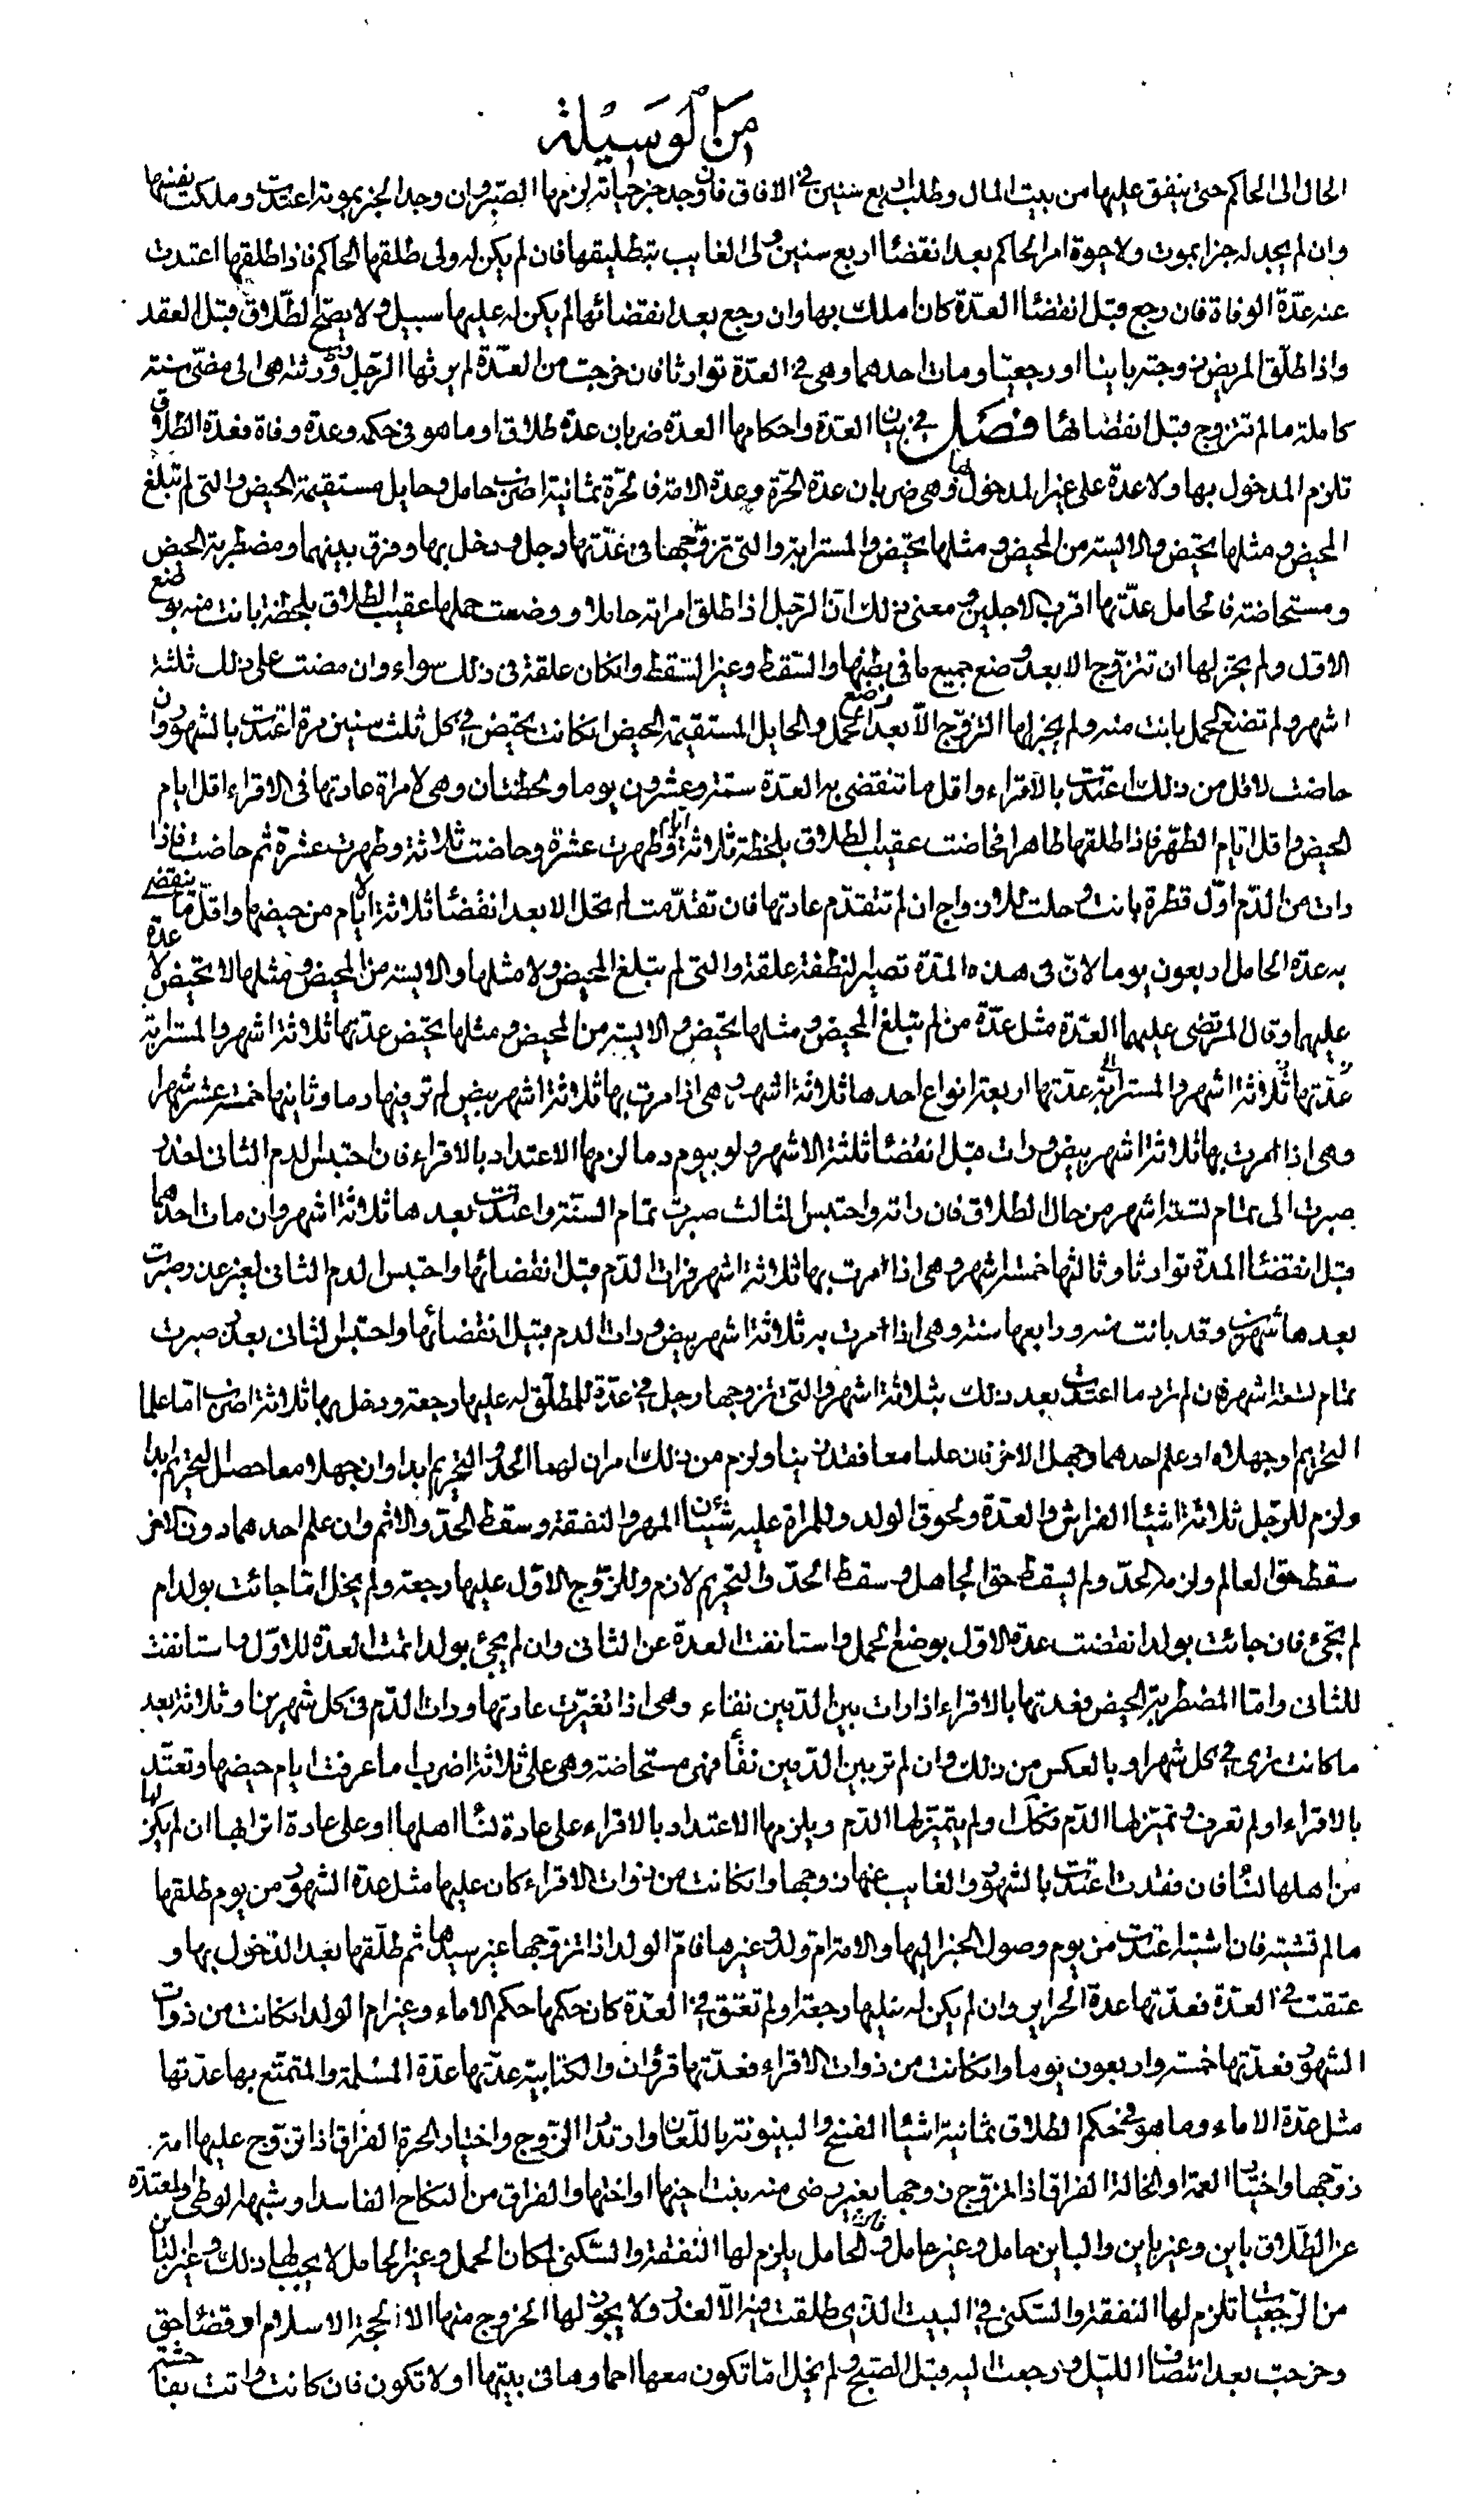 من الوسيلة
الحال الى الحاكم حتى ينفق عليها من بيت المال وطلب اربع سنين في الافاق فان وجد خبر حياته لزمها الصبر وان وجد الخبر بموته اعتدت وملكت نفسها
وان لم يجد له خبرا بموت ولا حيوة امر الحاكم بعد انقضاء اربع سنين ولى الغايب بتطليقها فان لم يكن له ولى طلقها الحاكم فاذا طلقها اعتدت
عنه عدّة الوفاة فان رجع قبل انقضاء العدّة كان املك بها وان رجع بعد انقضائها لم يكن له عليها سبيل ولا يصحّ الطّلاق قبل العقد
واذا طلّق المريض زوجته باينا او رجعيّا ومات احدهما وهي في العدّة توارثا فان خرجت من العدّة لم يرثها الرّجل وورثته هى الى مضّى سنة
كاملة ما لم تتزوج قبل انقضائها فصل في بيان العدّة واحكامها العدة ضربان عدة طلاق او ما هو في حكمه وعدة وفاة فعدة الطلاق
تلزم المدخول بها ولا عدة على غير المدخول بها وهى ضربان عدة الحرّة وعدة الامة فالحرّة ثمانية اضرب حامل وحايل مستقيمة الحيض والتى لم تبلغ
المحيض ومثلها تحيض والايسة من المحيض ومثلها تحيض والمسترابة والتى تزوّجها في عدّتها رجل ودخل بها وفرق بينهما ومضطربة الحيض
ومستحاضة فالحامل عدّتها اقرب الاجلين ومعنى ذلك انّ الرّجل اذا طلق امراته حاملا ووضعت حملها عقيب الطلاق بلحظة بانت منه بوضع
الاول ولم يجز لها ان تتزوّج الا بعد وضع جميع ما فى بطنها والسّقط وغير السّقط وان كان علقة فى ذلك سواء وان مضت على ذلك ثلثة
اشهر ولم تضع الحمل بانت منه ولم يجز لها التزوّج الّا بعد وضع الحمل والحايل المستقيمة الحيض ان كانت تحيض في كل ثلث سنين مرة اعتدت بالشهور وان
حاضت لاقل من ذلك اعتدّت بالاقراء واقل ما تنقضى به العدّة ستة وعشرون يوما ولحظتان وهى لامراة عادتها فى الاقراء اقل ايام
الحيض واقل ايّام الطهر فاذا طلقها طاهرا فحاضت عقيب الطلاق بلحظة ثلاثة ايام وطهرت عشرة وحاضت ثلاثة وطهرت عشرة ثم حاضت فاذا
رات من الدّم اوّل قطرة بانت وحلت للازواج ان لم تتقدّم عادتها فان تقدّمت لم تحل الا بعد انقضاء ثلاثة ايّام من حيضها واقلّ ما تنقضى
به عدة الحامل اربعون يوما لانّ فى هذه المدّة تصير النطفة علقة والتى لم تبلغ المحيض ولا مثلها والايسة من المحيض ومثلها لا تحيض لا عدة
عليهما وقال المرتضى عليهما العدّة مثل عدّة من لم تبلغ المحيض ومثلها تحيض والايسة من المحيض ومثلها تحيض عدّتها ثلاثة اشهر والمسترابة
عدّتها ثلاثة اشهر والمسترابة عدّتها اربعة انواع احدها ثلاثة اشهر وهى اذا مرت بها ثلاثة اشهر بيض لم تر فيها دما وثانيها خمسة عشر شهرا
وهى اذا مرت بها ثلاثة اشهر بيض ورات قبل انقضاء ثلثة الاشهر ولو بيوم دما لزمها الاعتداد بالاقراء فان احتبس الدم الثانى لعذر
صبرت الى تمام تسعة اشهر من حال الطلاق فان راته واحتبس الثالث صبرت تمام السنة واعتدّت بعدها ثلاثة اشهر وان مات احدهما
قبل انقضاء المدة توارثا وثالثها خمسة اشهر وهى اذا مرت بها ثلاثة اشهر فرات الدّم قبل انقضائها واحتبس الدم الثانى لغير عذر وصبرت
بعدها شهرين وقد بانت منه ورابعها سنة وهى اذا مرت به ثلاثة اشهر بيض ورات الدم قبل انقضائها واحتبس الثانى بعذر صبرت
تمام تسعة اشهر فان لم تر دما اعتدّت بعد ذلك بثلاثة اشهر والتى تزوجها رجل في عدّة للمطلّق له عليها رجعة ودخل بها ثلاثة اضرب امّا علما
التحريم او جهلاه او علم احدهما وجهل الاخر فان علما معا فقد زنيا ولزم من ذلك امران لهما الحدّ والتحريم ابدا وان جهلا معا حصل التحريم ابدا
ولزم للرّجل ثلاثة اشياء الفراش والعدّة ولحوق الولد وللمراة عليه شيئان المهر والنفقة وسقط الحدّ والاثم وان علم احدهما دون الاخر
سقط حق العالم ولزمه الحدّ ولم يسقط حق الجاهل وسقط الحدّ والتحريم لازم وللزّوج الاوّل عليها رجعة ولم يخل امّا جائت بولد ام
لم تجئ فان جائت بولد انقضت عدة الاول بوضع الحمل واستانفت العدة عن الثانى وان لم تجئ بولد اتمت العدة للاوّل واستانفت
للثانى وامّا المضطربة الحيض فعدتها بالاقراء اذا رات بين الدّمين نقاء وهى اذا تغيّرت عادتها ورات الدّم فى كل شهرين او ثلاثة بعد
ما كانت ترى في كل شهر او بالعكس من ذلك وان لم تر بين الدّمين نقاء فهى مستحاضة وهى على ثلاثة اضرب اما عرفت ايام حيضها وتعتدّ
بالاقراء او لم تعرف وتميّز لها الدّم فكذلك او لم يتميّز لها الدّم ويلزمها الاعتداد بالاقراء على عادة نساء اهلها او على عادة اترابها ان لم يكن لها
من اهلها نساء فان فقدت اعتدّت بالشهور والغايب عنها زوجها وان كانت من ذوات الاقراء كان عليها مثل عدة الشهور من يوم طلقها
ما لم تشتبه فان اشتبه اعتدت من يوم وصول الخبر اليها والامة ام ولد وغيرها فامّ الولد اذا تزوّجها غير سيدها ثم طلّقها بعد الدّخول بها و
عتقت في العدّة فعدّتها عدة الحراير وان لم يكن له عليها رجعة او لم تعتق في العدّة كان حكمها حكم الاماء وغير ام الولد ان كانت من ذوات
الشهور فعدّتها خمسة واربعون يوما وان كانت من ذوات الاقراء فعدّتها قرؤان والكتابية عدّتها عدّة المسلمة والمتمتّع بها عدّتها
مثل عدّة الاماء وما هو في حكم الطلاق ثمانية اشياء الفسخ والبينونة باللّعان وارتداد الزّوج واختيار الحرة الفراق اذا تزوّج عليها امة
زوجها واختيار العمة او الخالة الفراق اذا تزوّج زوجها بغير رضى منه بنت اخيها او اختها والفراق من النكاح الفاسد او شبهة الوطى والمعتدّة
عن الطّلاق باين وغير باين والباين حامل وغير حامل فالحامل يلزم لها النفقة والسّكنى لمكان الحمل وغير الحامل لا يجب لها ذلك وغير الباين
من الرّجعيات تلزم لها النفقة والسّكنى في البيت الذى طلقت فيه الّا لعذر ولا يجوز لها الخروج منها الا لحجة الاسلام او قضاء حق
وخرجت بعد انتصاف اللّيل ورجعت اليه قبل الصّبح ولم يخل امّا تكون معها احماوها فى بيتها او لا تكون فان كانت واتت بفاحشة